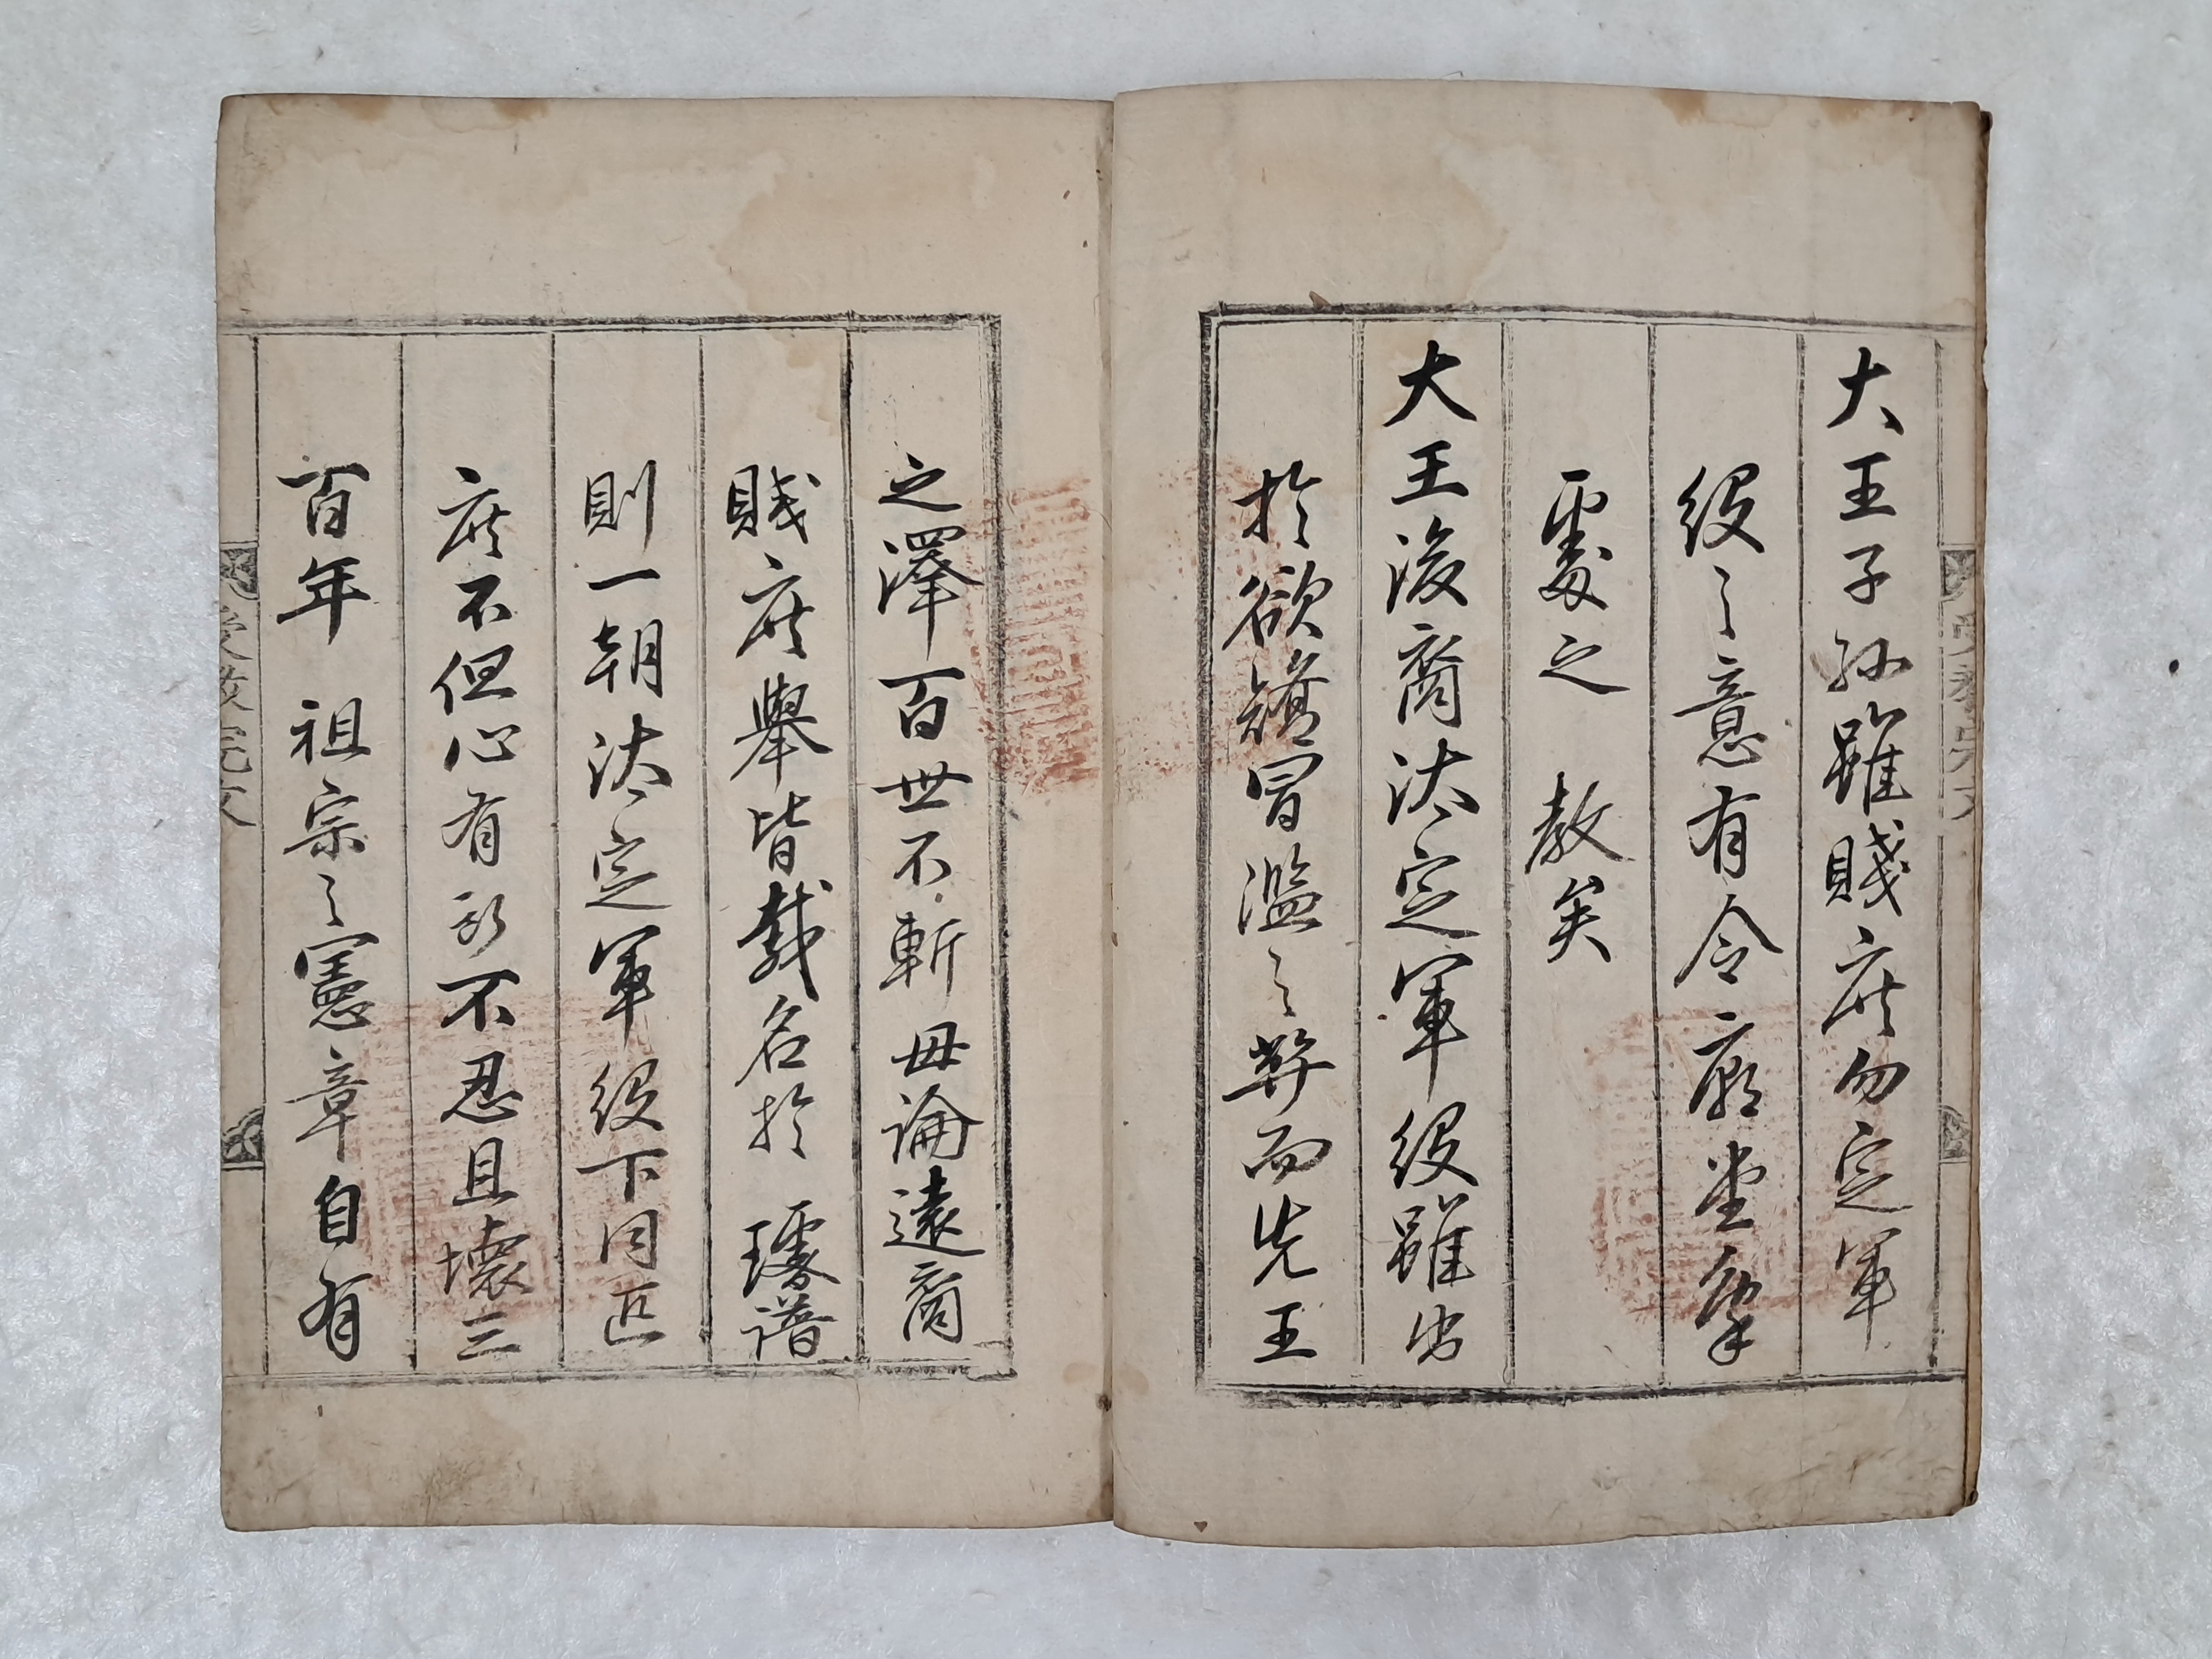 大王子孫雖賤庶勿定軍
役之意有令廟堂稟
處之 教矣
大王後裔汰定軍役雖出
於欲矯冒濫之弊而先王
之澤百世不斬毋論遠裔
賤庶擧皆載名於 璿譜
則一朝汰定軍役下同匹
庶不但心有所不忍且壞三
百年 祖宗之憲章自有
受敎完文